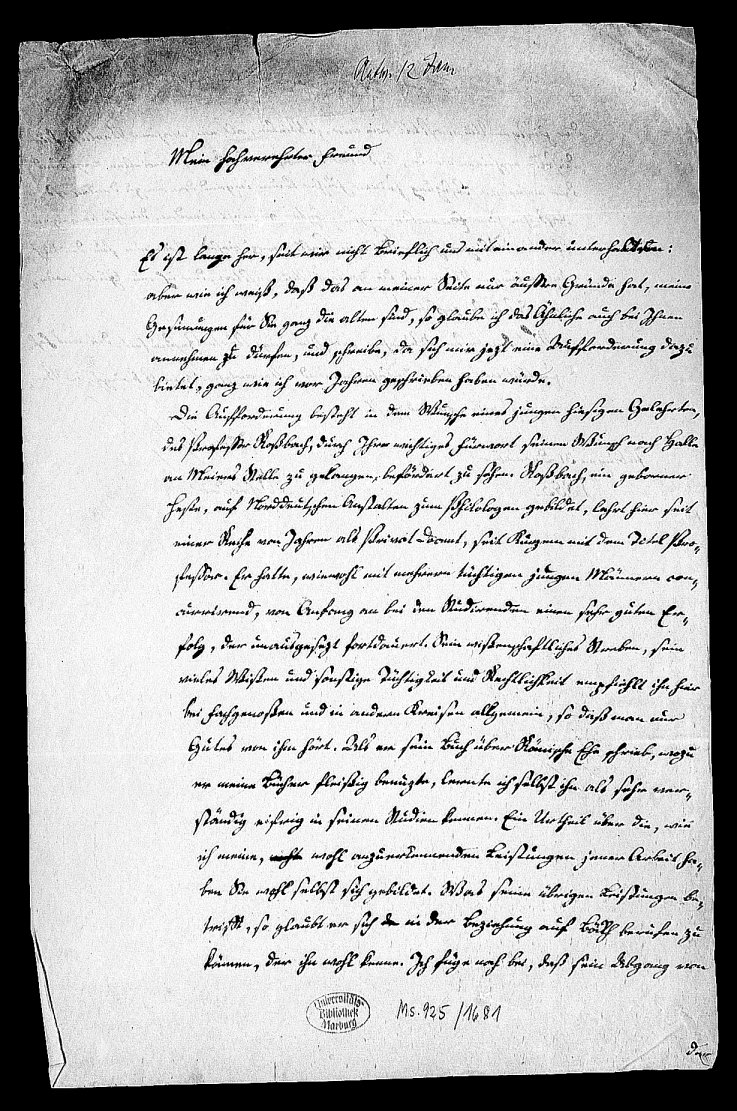 Antw. 12 Jan
Mein hochverehrter Freund
Es ist lange her, seit wir nicht brieflich uns mit einander unterhalten:
aber wie ich weiß, daß das an meiner Seite nur äußre Gründe hat, meine
Gesinnungen für Sie ganz die alten sind, so glaube ich das Ähnliche auch bei Ihnen
annehmen zu dürfen, und schreibe, da sich mir jezt eine Aufforderung dazu
bietet, ganz wie ich vor Jahren geschrieben haben würde.
Die Aufforderung besteht in dem Wunsche eines jungen hiesigen Gelehrten,
des Professor Roßbach, durch Ihr wichtiges Fürwort seinen Wunsch nach Halle
an Meiers Stelle zu gelangen, befördert zu sehen. Roßbach, ein geborner
Hesse, auf Norddeutschen Anstalten zum Philologen gebildet, lehrt hier seit
einer Reihe von Jahren als Privat Docent, seit Kurzem mit dem Titel Pro-
fessor. Er hatte, wiewohl mit mehrern tüchtigen jungen Männern con-
currirend, von Anfang an bei den Studirenden einen sehr guten Er-
folg, der unausgesezt fortdauert. Sein wissenschaftliches Streben, sein
vieles Wissen und sonstige Tüchtigkeit und Rechtlichkeit empfiehlt ihn hier
bei Fachgenossen und in andern Kreisen allgemein, so daß man nur
Gutes von ihm hört. Als er sein Buch über Römische Ehe schrieb, wozu
er meine Bücher fleißig benuzte, lernte ich selbst ihn als sehr ver-
ständig eifrig in seinen Studien kennen. Ein Urtheil über die, wie
ich meine, wohl anzuerkennenden Leistungen jener Arbeit ha-
ben Sie wohl selbst sich gebildet. Was seine übrigen Leistungen be-
trifft, so glaubt er sich in der Beziehung auf Böckh berufen zu
können, der ihn wohl kenne. Ich füge noch bei, daß sein Abgang von
Universitäts-
Bibliothek
Marburg
Ms. 925/1681